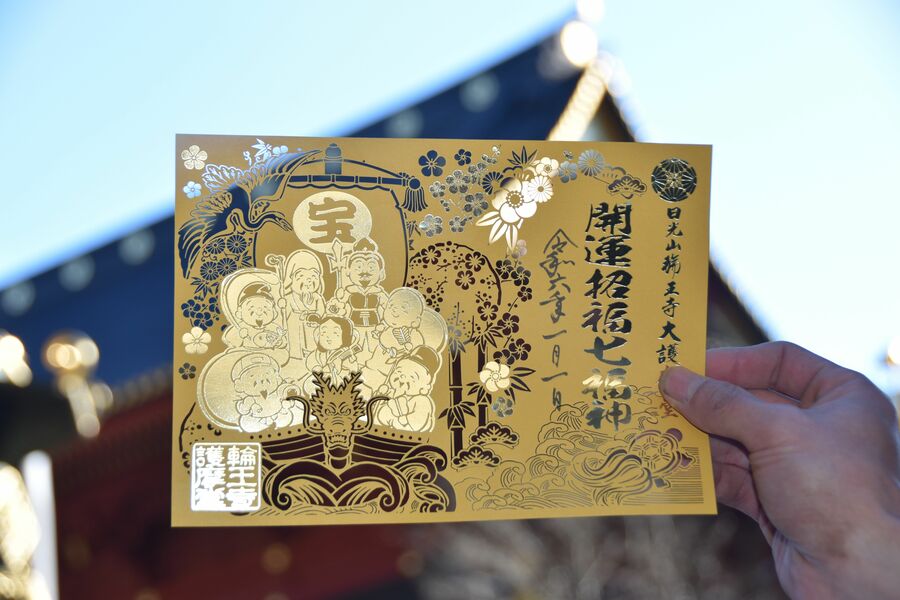 日光山輪王寺大護
開運招福七福神
令和六年一月一日
宝
輪王寺
護摩堂